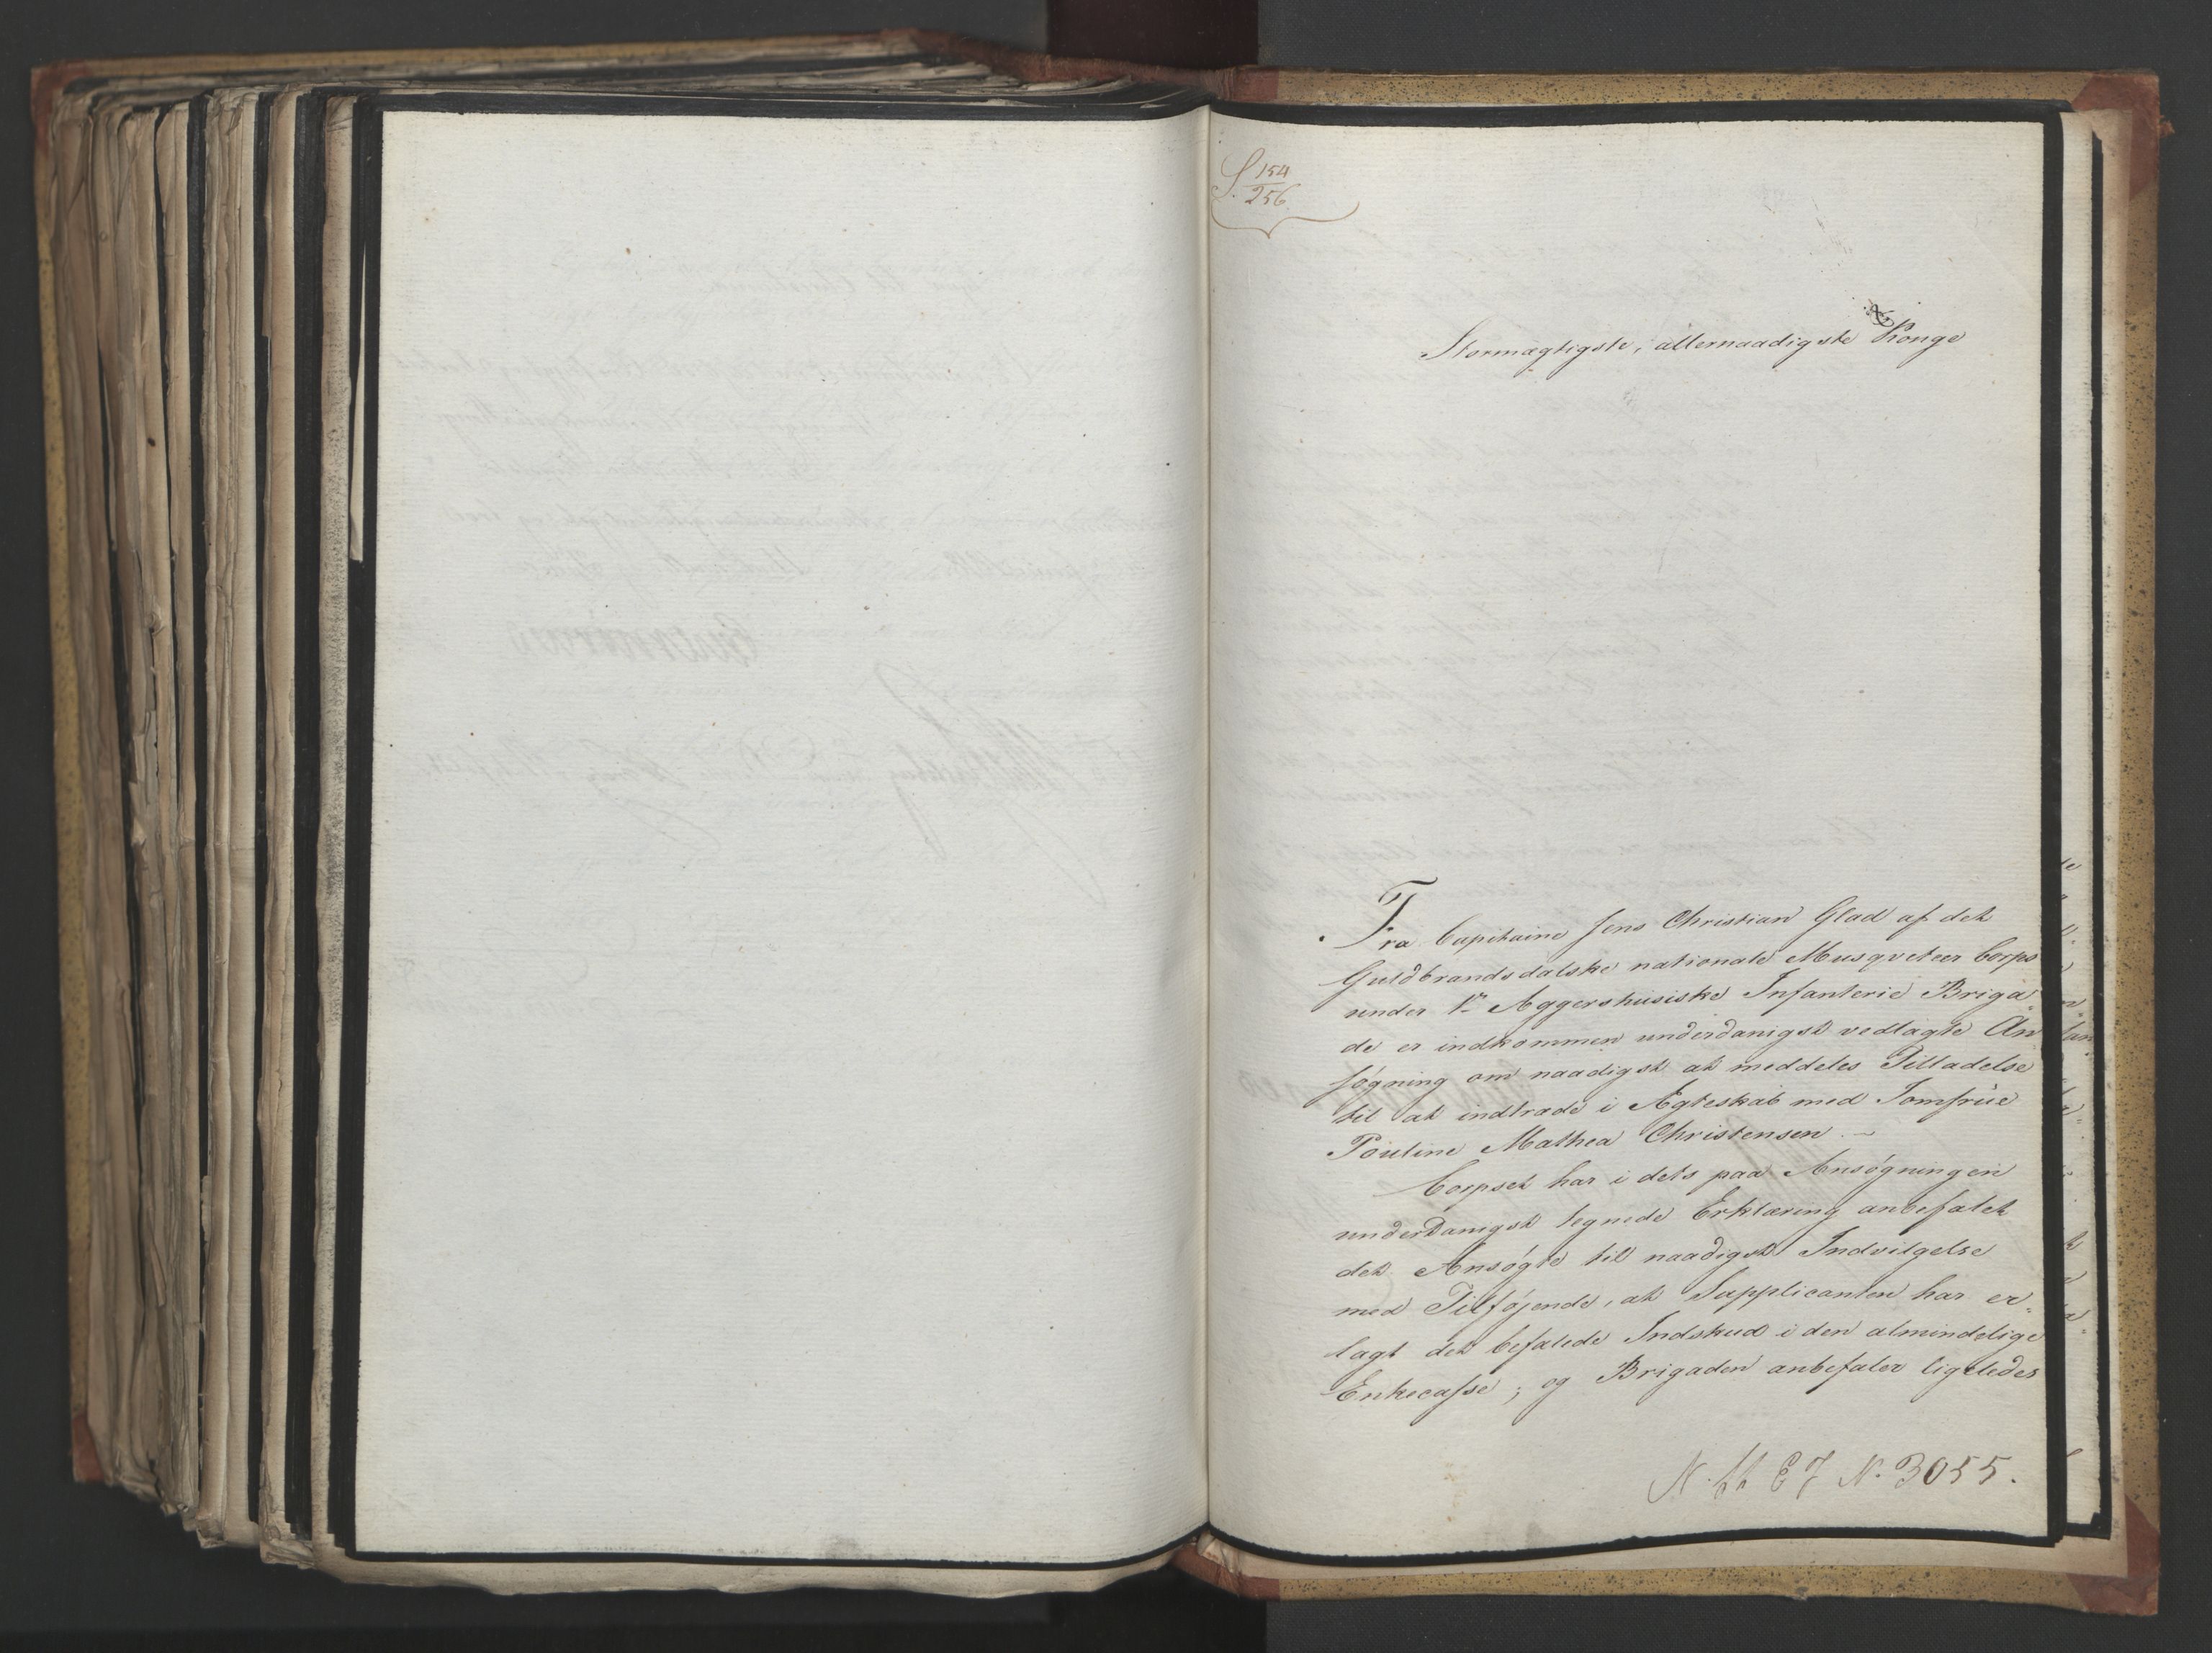 S. 154
256.
Stormægtigste, allernaadigste Konge
Fra Capitaine Jens Christian Glad af det
Guldbrandsdalske nationale Musqveteer Corps
under 1ste Aggershusiske Infanterie Briga-
de er indkommen underdanigst vedlagte An
søgning om naadigst at meddeles Tilladelse
til at indtræde i Ægteskab med Jomfrue
Pouline Mathea Christensen. —
Corpset har i dets paa Ansøgningen
underdanigst tegnede Erklæring anbefalet
det Ansøgte til naadigst Indvilgelse
med Tilføjende, at Supplicanten har er-
lagt det befalede Indskud i den almindelige
Enkecasse; og Brigaden anbefaler ligeledes
N. 3055.